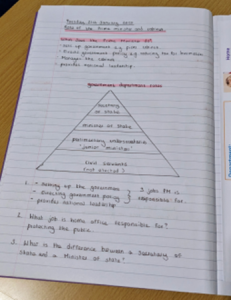 Role of the Prime Minister and cabinet
What does the Prime Minister do?
- Sets up government e.g. civil service.
- Directs government policy e.g. setting the
- Manages the cabinet
- Provides national leadership
Government departments roles
Secretary
of State
Minister of State
Parliamentary undersecretaries
'junior ministers'
Civil servants
(not elected)
1. • Setting up the government
• Directing government policy
• provides national leadership
3 jobs PM is
responsible for.
2. What job is home office responsible for?
protecting the public.
3. What is the difference between a Secretary of
State and a Minister of State?